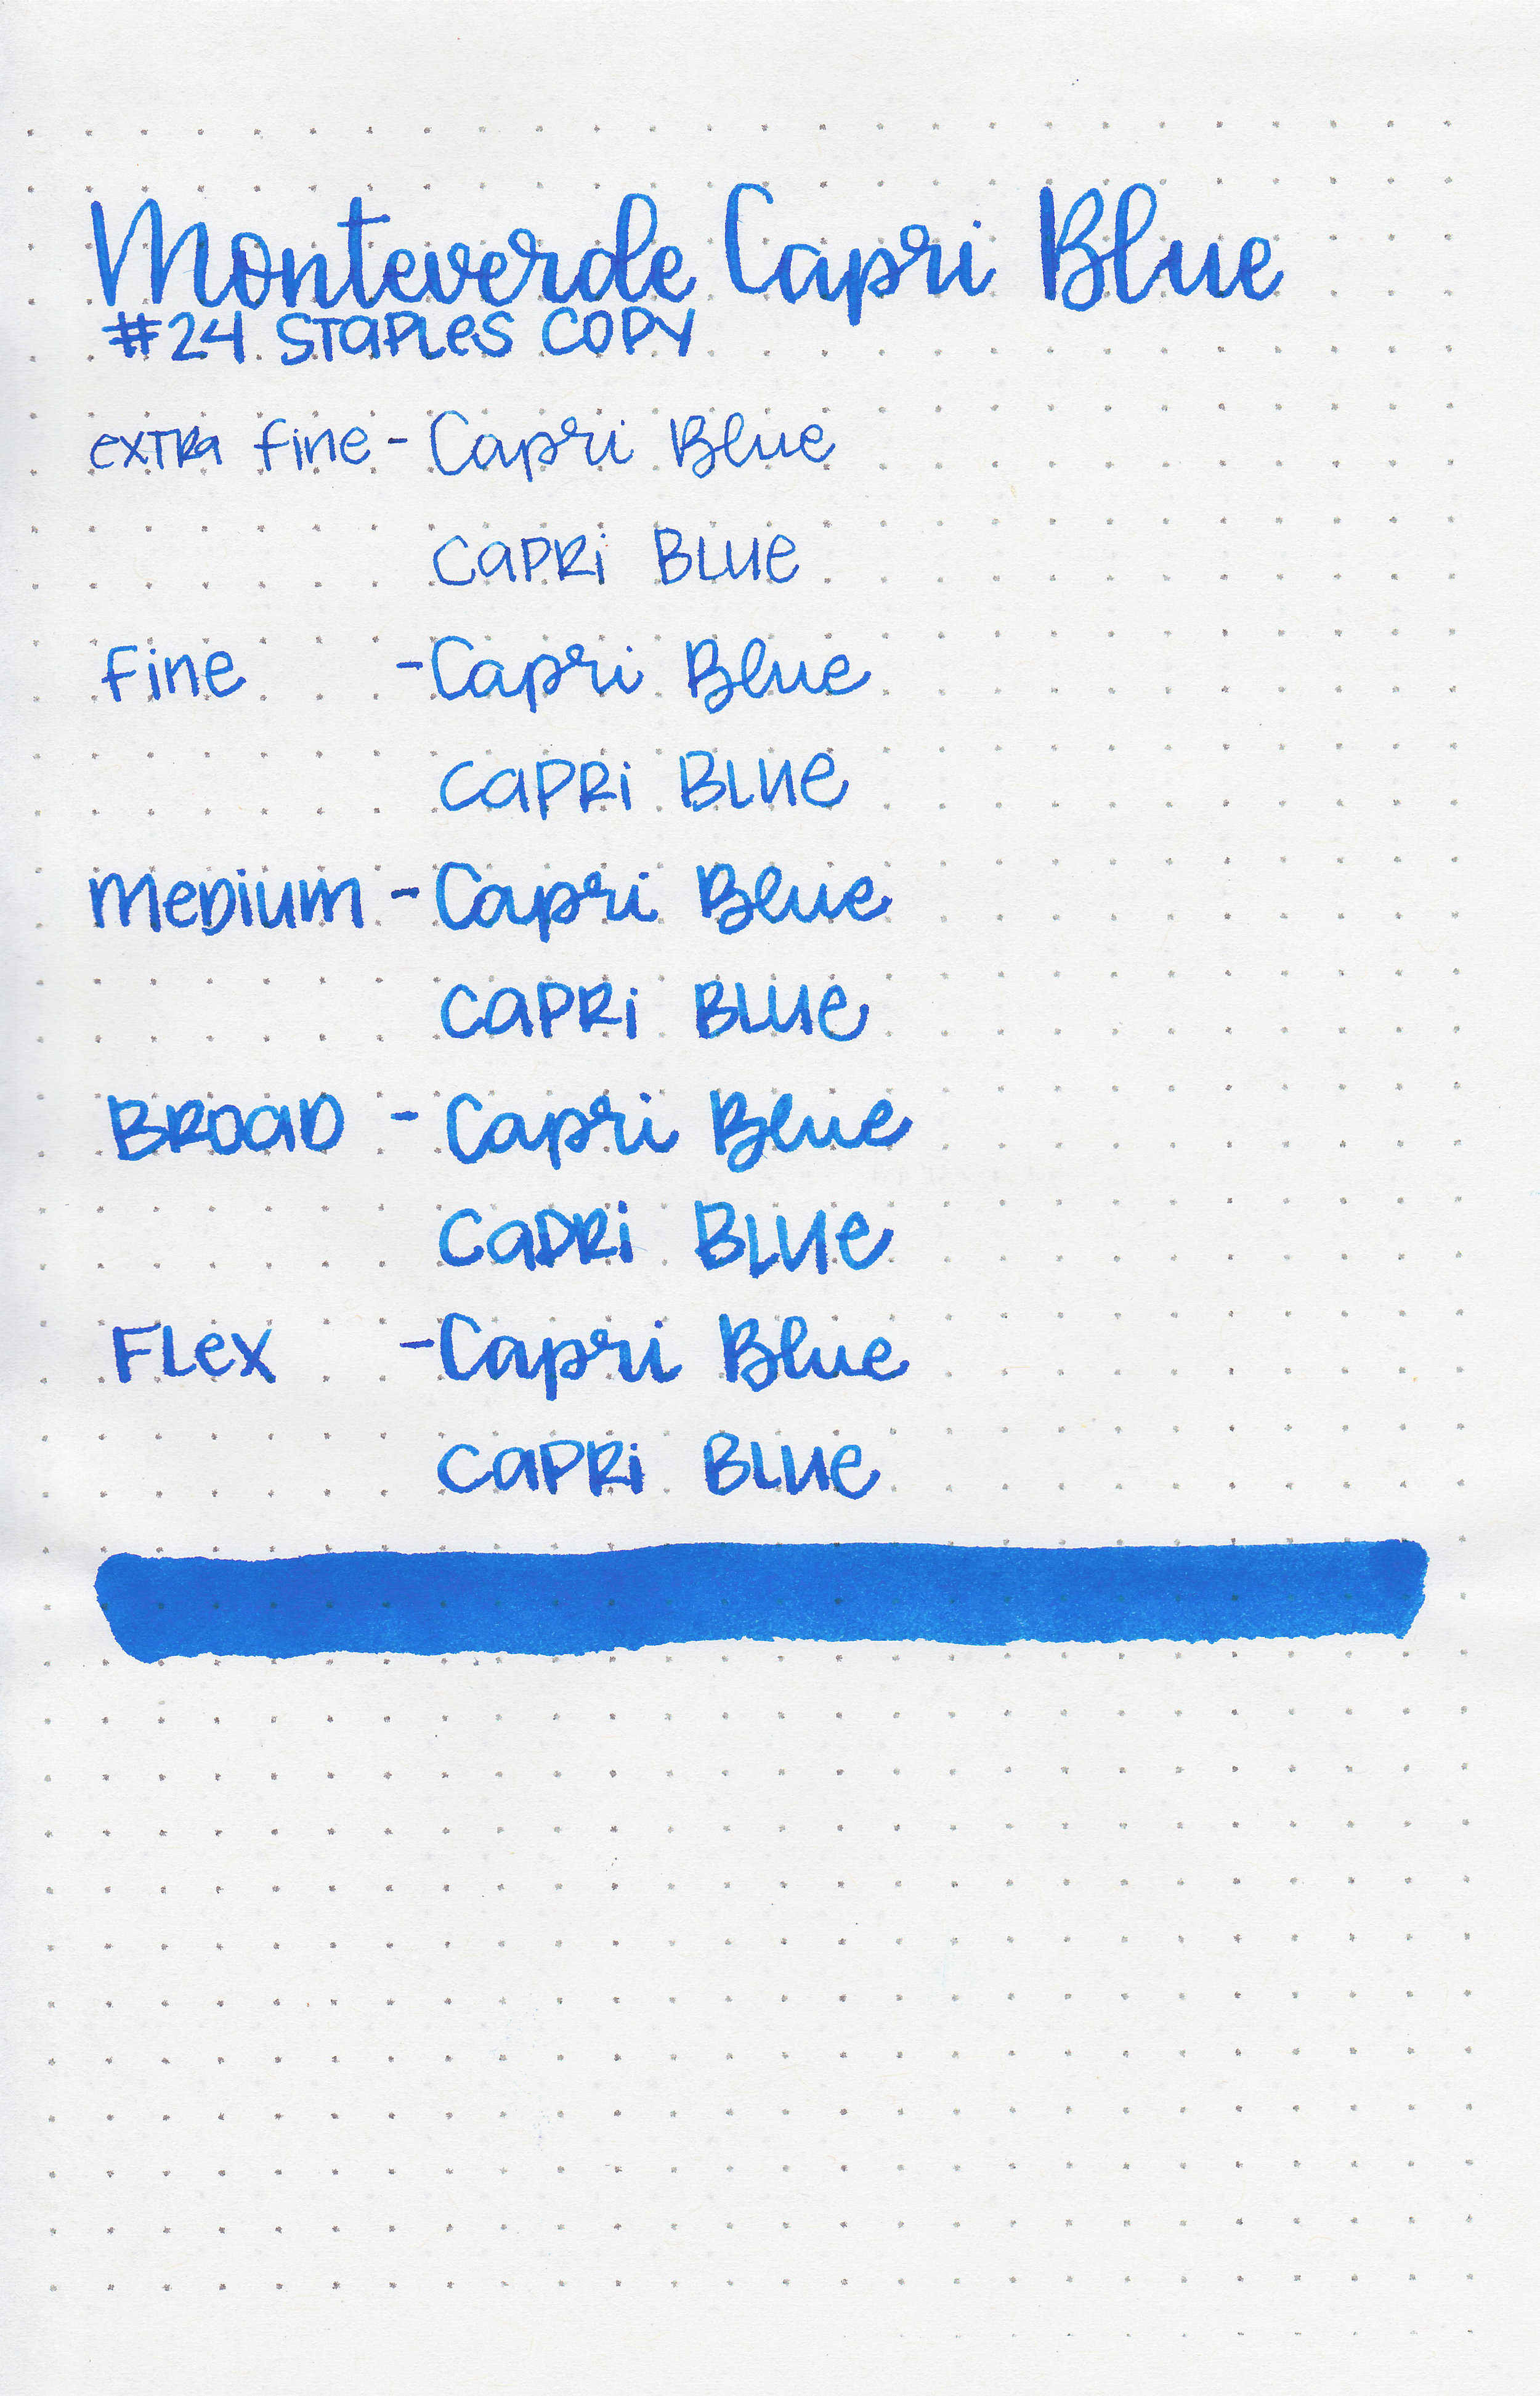 Monteverde Capri Blue
#24 STAPLES COPY
extra fine - Capri Blue
CAPRI BLUE
fine - Capri Blue
CAPRI BLUE
MEDIUM - Capri Blue
CAPRI BLUE
BROAD - Capri Blue
CAPRI BLUE
FLEX - Capri Blue
CAPRI BLUE